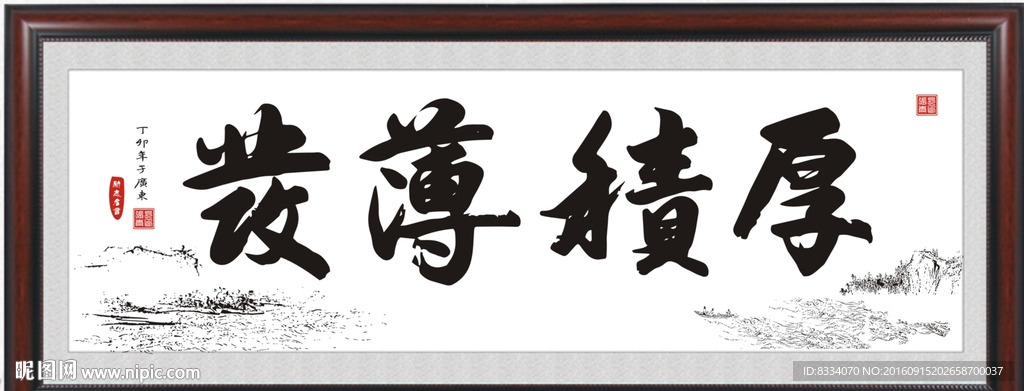 厚積薄發
丁卯年于廣東
昵图网 www.nipic.com
ID:8334070 NO:20160915202658700037